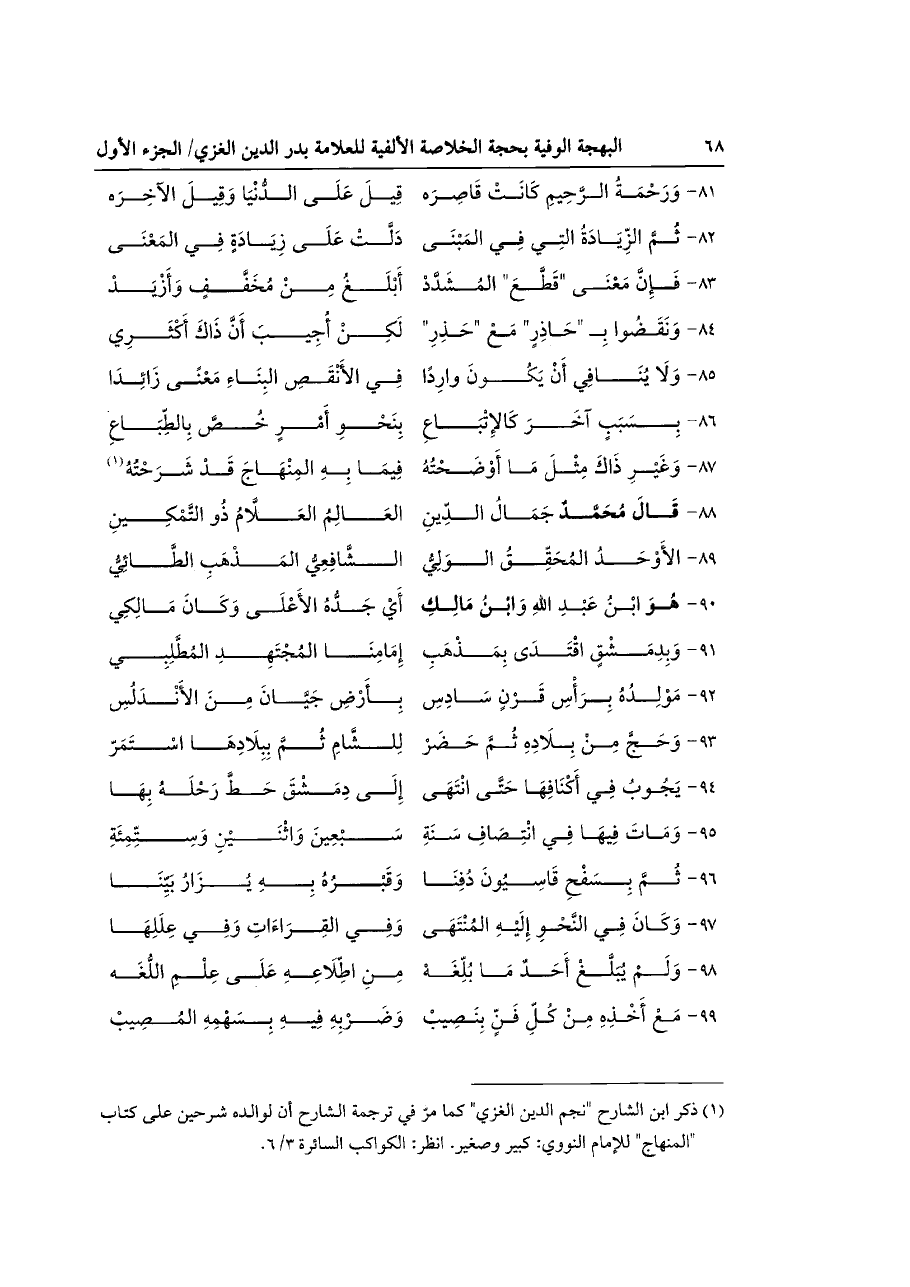 ٦٨ البهجة الوفية بحجة الخلاصة الألفية للعلامة بدر الدين الغزي/ الجزء الأول
٨١- وَرَحْمَةُ الرَّحِيمِ كَانَتْ قَاصِرَه قِيلَ عَلَى الدُّنْيَا وَقِيلَ الآخِرَه
٨٢- ثُمَّ الزِّيَادَةُ التِي فِي المَبْنَى دَلَّتْ عَلَى زِيَادَةٍ فِي المَعْنَى
٨٣- فَإِنَّ مَعْنَى "قَطَّعَ" المُشَدَّدْ أَبْلَغُ مِنْ مُخَفَّفٍ وَأَزْيَدْ
٨٤- وَنَقَضُوا بِـ "حَاذِرٍ" مَعْ "حَذِرِ" لَكِنْ أُجِيبَ أَنَّ ذَاكَ أَكْثَرِي
٨٥- وَلَا يُنَافِي أَنْ يَكُونَ وارِدًا فِي الأَنْقَصِ البِنَاءِ مَعْنًى زَائِدَا
٨٦- بِسَبَبٍ آخَرَ كَالإِتْبَاعِ بِنَحْوِ أَمْرٍ خُصَّ بِالطِّبَاعِ
٨٧- وَغَيْرِ ذَاكَ مِثْلَ مَا أَوْضَحْتُهُ فِيمَا بِهِ المِنْهَاجَ قَدْ شَرَحْتُهُ(١)
٨٨- قَالَ مُحَمَّدٌ جَمَالُ الدِّينِ العَالِمُ العَلَّامُ ذُو التَّمْكِينِ
٨٩- الأَوْحَدُ المُحَقِّقُ الوَلِيُّ الشَّافِعِيُّ المَذْهَبِ الطَّائِيُّ
٩٠- هُوَ ابْنُ عَبْدِ اللهِ وَابْنُ مَالِكِ أَيْ جَدُّهُ الأَعْلَى وَكَانَ مَالِكِي
٩١- وَبِدِمَشْقٍ اقْتَدَى بِمَذْهَبِ إِمَامِنَا المُجْتَهِدِ المُطَّلِبِي
٩٢- مَوْلِدُهُ بِرَأْسِ قَرْنٍ سَادِسِ بِأَرْضِ جَيَّانَ مِنَ الأَنْدَلُسِ
٩٣- وَحَجَّ مِنْ بِلَادِهِ ثُمَّ حَضَرْ لِلشَّامِ ثُمَّ بِبِلَادِهَا اسْتَمَرّ
٩٤- يَجُوبُ فِي أَكْنَافِهَا حَتَّى انْتَهَى إِلَى دِمَشْقَ حَطَّ رَحْلَهُ بِهَا
٩٥- وَمَاتَ فِيهَا فِي انْتِصَافِ سَنَةِ سَبْعِينَ وَاثْنَيْنِ وَسِتِّمِئَةِ
٩٦- ثُمَّ بِسَفْحِ قَاسِيُونَ دُفِنَا وَقَبْرُهُ بِهِ يُزَارُ بَيِّنَا
٩٧- وَكَانَ فِي النَّحْوِ إِلَيْهِ المُنْتَهَى وَفِي القِرَاءَاتِ وَفِي عِلَلِهَا
٩٨- وَلَمْ يُبَلَّغْ أَحَدٌ مَا بُلِّغَهْ مِنِ اطِّلَاعِهِ عَلَى عِلْمِ اللُّغَه
٩٩- مَعْ أَخْذِهِ مِنْ كُلِّ فَنٍّ بِنَصِيبْ وَضَرْبِهِ فِيهِ بِسَهْمِهِ المُصِيبْ
(١) ذكر ابن الشارح "نجم الدين الغزي" كما مرّ في ترجمة الشارح أن لوالده شرحين على كتاب
"المنهاج" للإمام النووي: كبير وصغير. انظر: الكواكب السائرة ٦/٣.